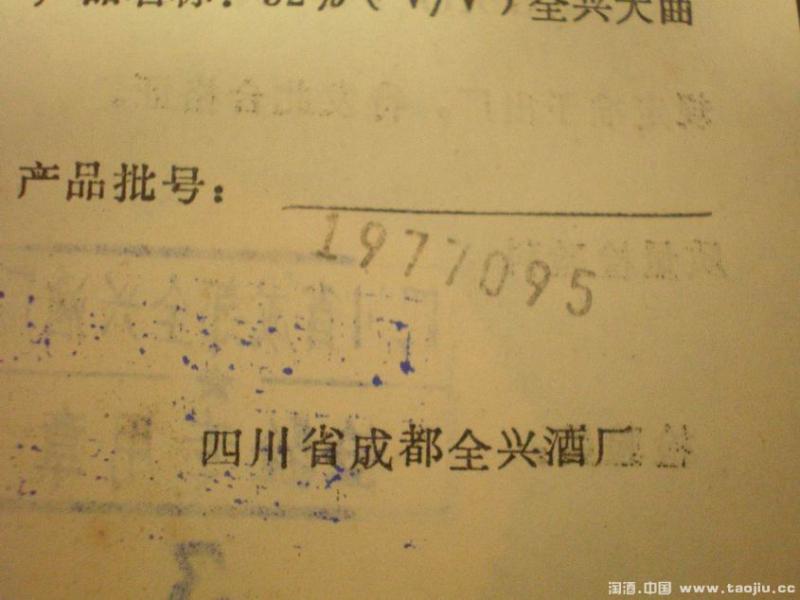 产品名称：52%(V/V)全兴大曲
产品批号：
1977095
四川省成都全兴酒厂
淘酒.中国 www.taojiu.cc